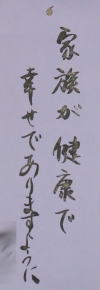 家族が健康で
幸せでありますように